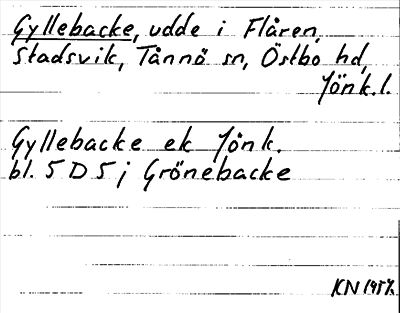 Gyllebacke, udde i Flåren,
Stadsvik, Tånnö sn, Östbo hd,
Jönk.l.
Gyllebacke ek Jönk.
bl. 5 D 5 j Grönebacke
KN